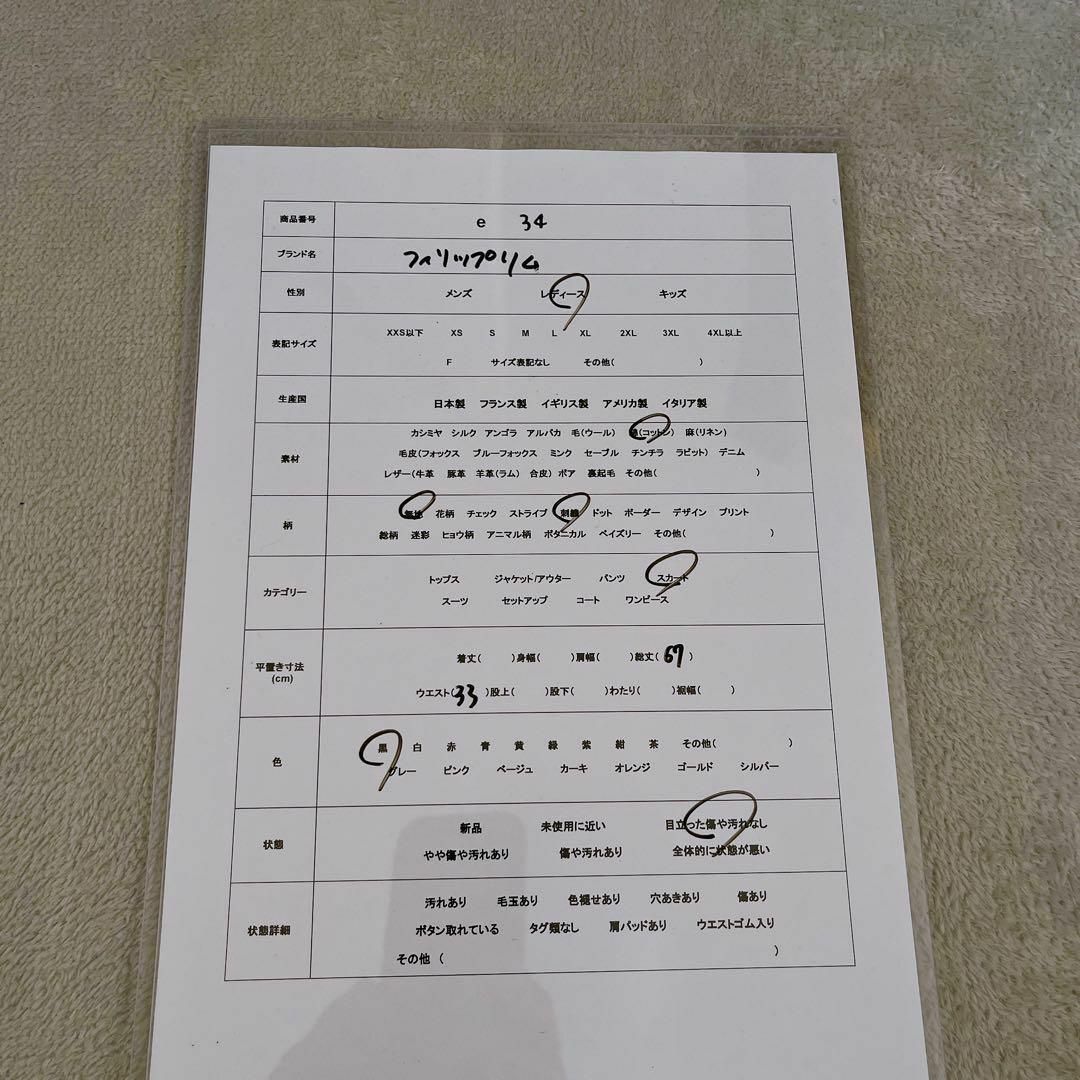 商品番号 e 34
ブランド名 フィリップリム
性別 メンズ レディース キッズ
表記サイズ XXS以下 XS S M L XL 2XL 3XL 4XL以上
F サイズ表記なし その他( )
生産国 日本製 フランス製 イギリス製 アメリカ製 イタリア製
カシミヤ シルク アンゴラ アルパカ 毛(ウール) 綿(コットン) 麻(リネン)
素材 毛皮(フォックス ブルーフォックス ミンク セーブル チンチラ ラビット) デニム
レザー(牛革 豚革 羊革(ラム) 合皮) ボア 裏起毛 その他( )
柄 無地 花柄 チェック ストライプ 刺繍 ドット ボーダー デザイン プリント
総柄 迷彩 ヒョウ柄 アニマル柄 ボタニカル ペイズリー その他( )
カテゴリー トップス ジャケット/アウター パンツ スカート
スーツ セットアップ コート ワンピース
平置き寸法 着丈( )身幅( )肩幅( )総丈( 67 )
(cm) ウエスト( 33 )股上( )股下( )わたり( )裾幅( )
色 黒 白 赤 青 黄 緑 紫 紺 茶 その他( )
グレー ピンク ベージュ カーキ オレンジ ゴールド シルバー
状態 新品 未使用に近い 目立った傷や汚れなし
やや傷や汚れあり 傷や汚れあり 全体的に状態が悪い
状態詳細 汚れあり 毛玉あり 色褪せあり 穴あきあり 傷あり
ボタン取れている タグ類なし 肩パッドあり ウエストゴム入り
その他 ( )